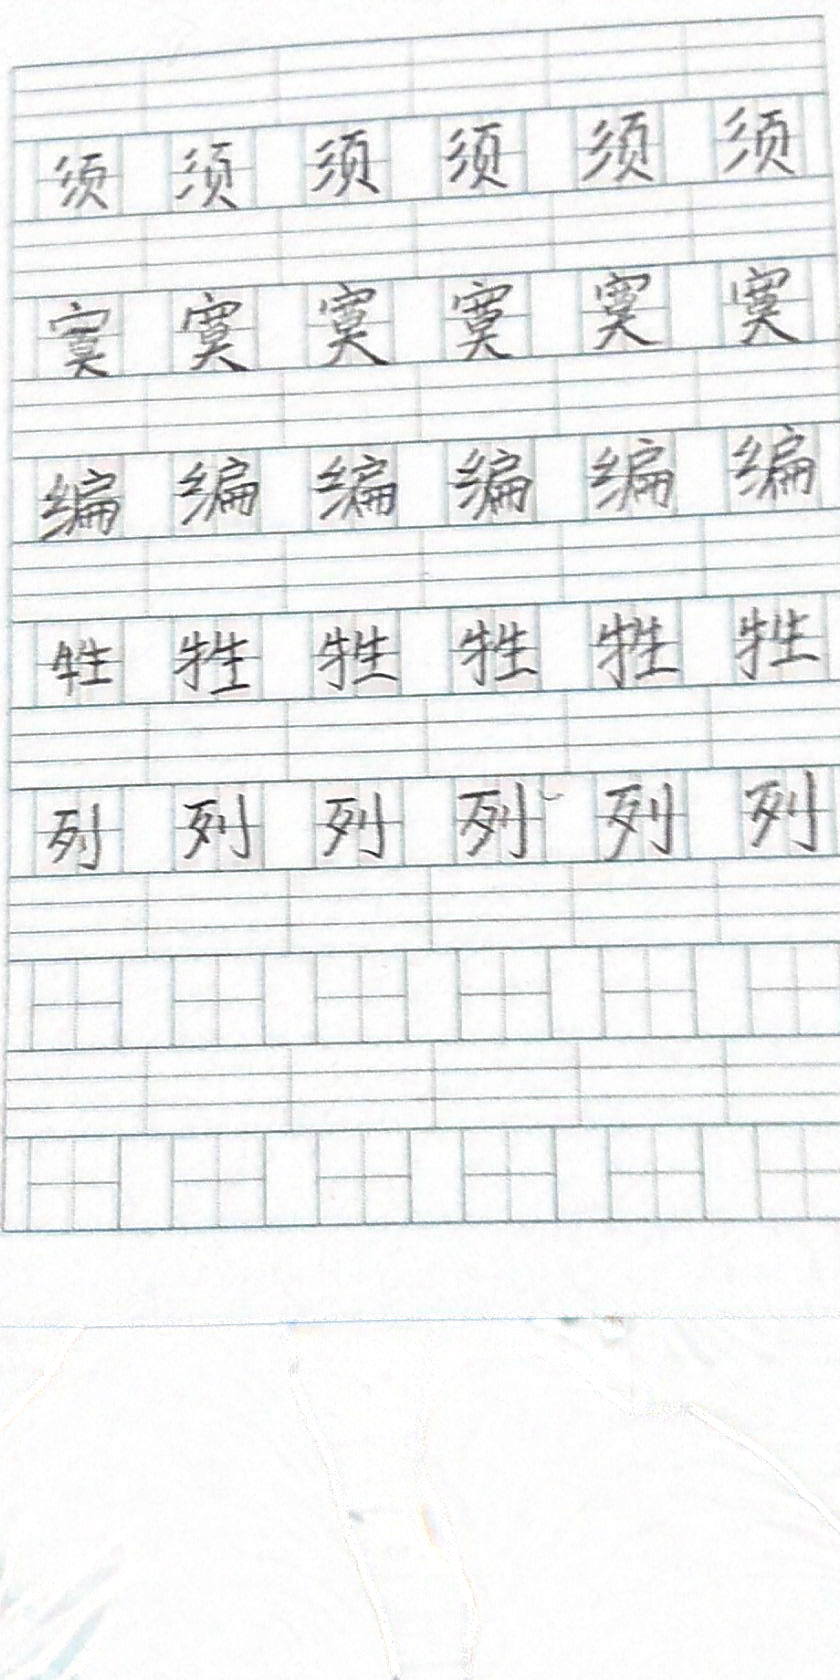 须 须 须 须 须 须
寞 寞 寞 寞 寞 寞
编 编 编 编 编 编
牲 牲 牲 牲 牲 牲
列 列 列 列 列 列